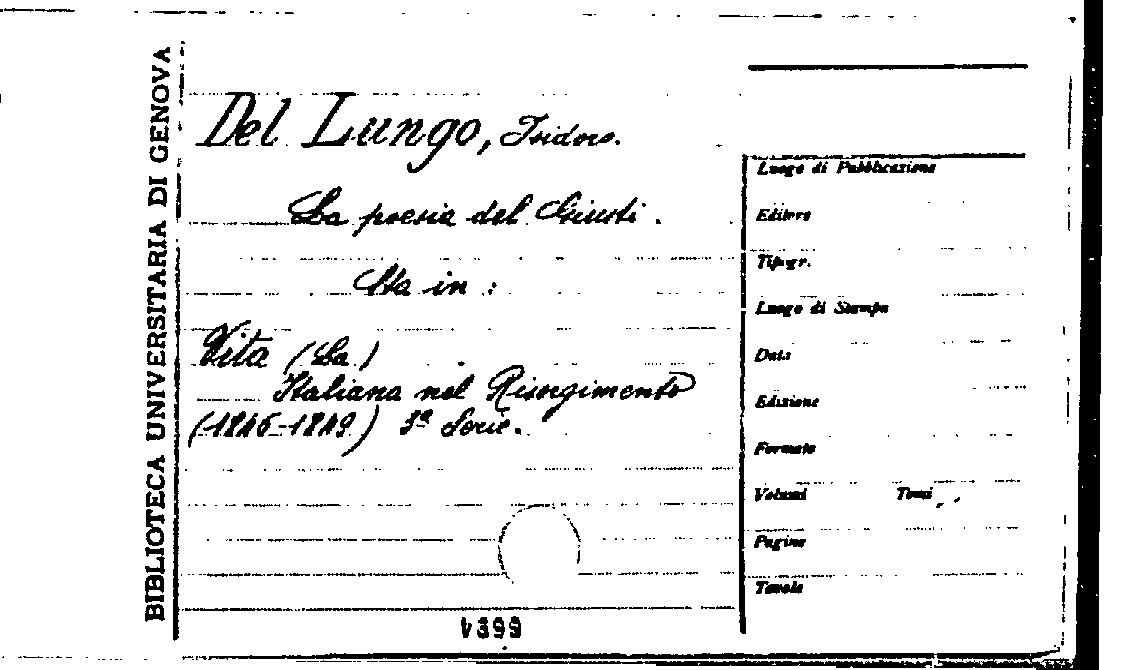 BIBLIOTECA UNIVERSITARIA DI GENOVA
Del Lungo, Isidoro.
La poesia del Giusti.
Sta in:
Vita (La)
Italiana nel Risorgimento
(1846-1849) 3ª Serie.
Luogo di Pubblicazione
Editore
Tipogr.
Luogo di Stampa
Data
Edizione
Formato
Volumi Tomi
Pagine
Tavole